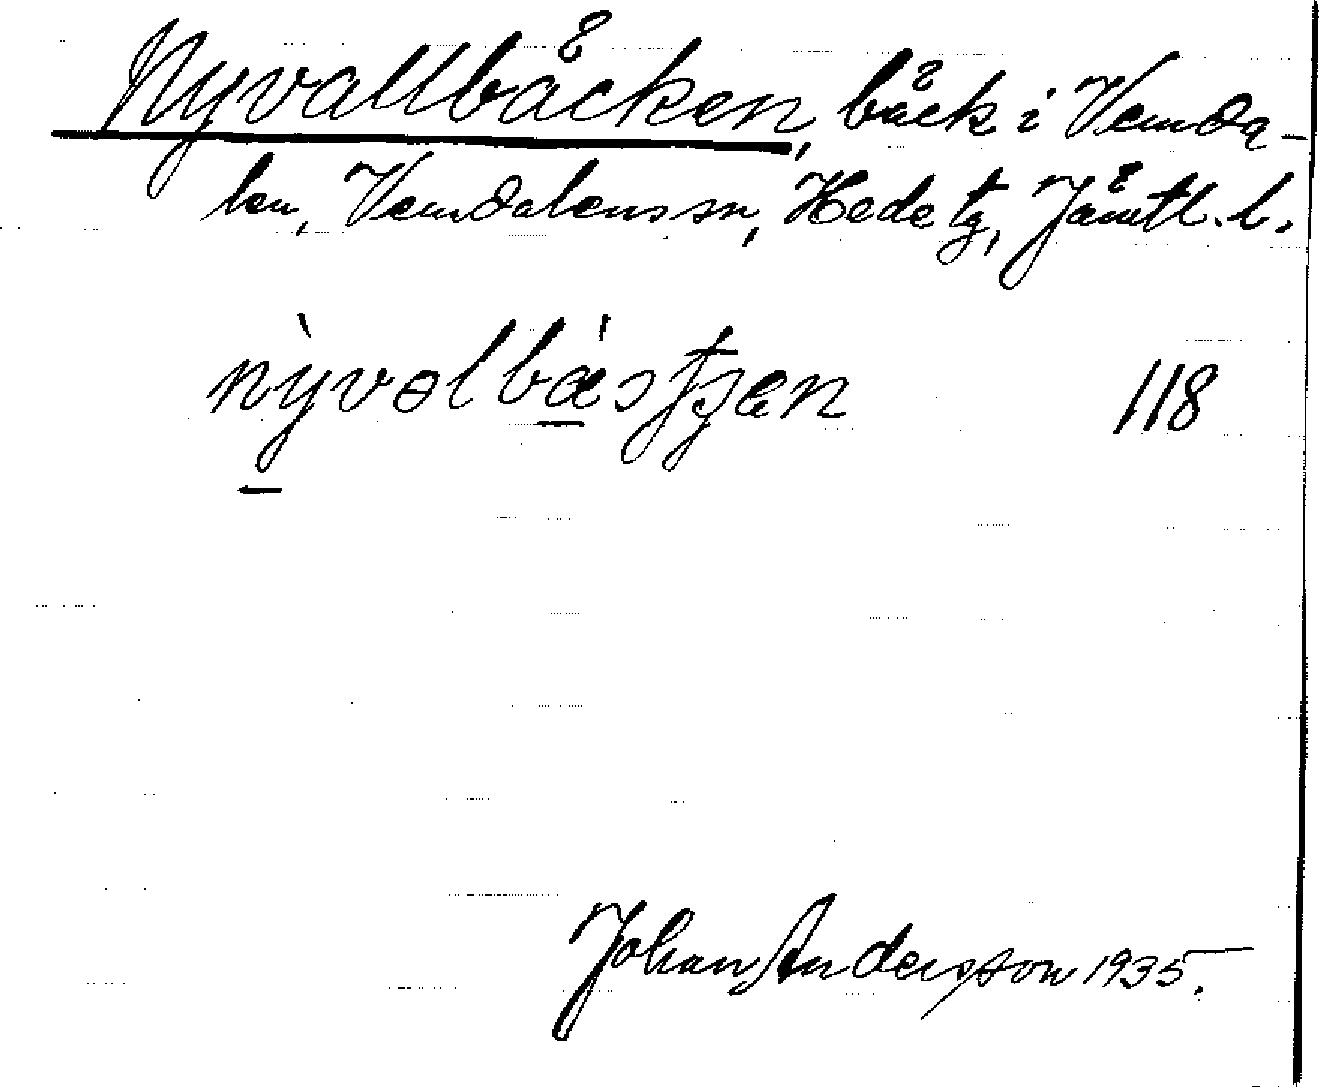 Nyvallbäcken, bäck i Vemda-
len, Vemdalens sn, Hede tg, Jämtl. l.
118
Johan Andersson 1935.